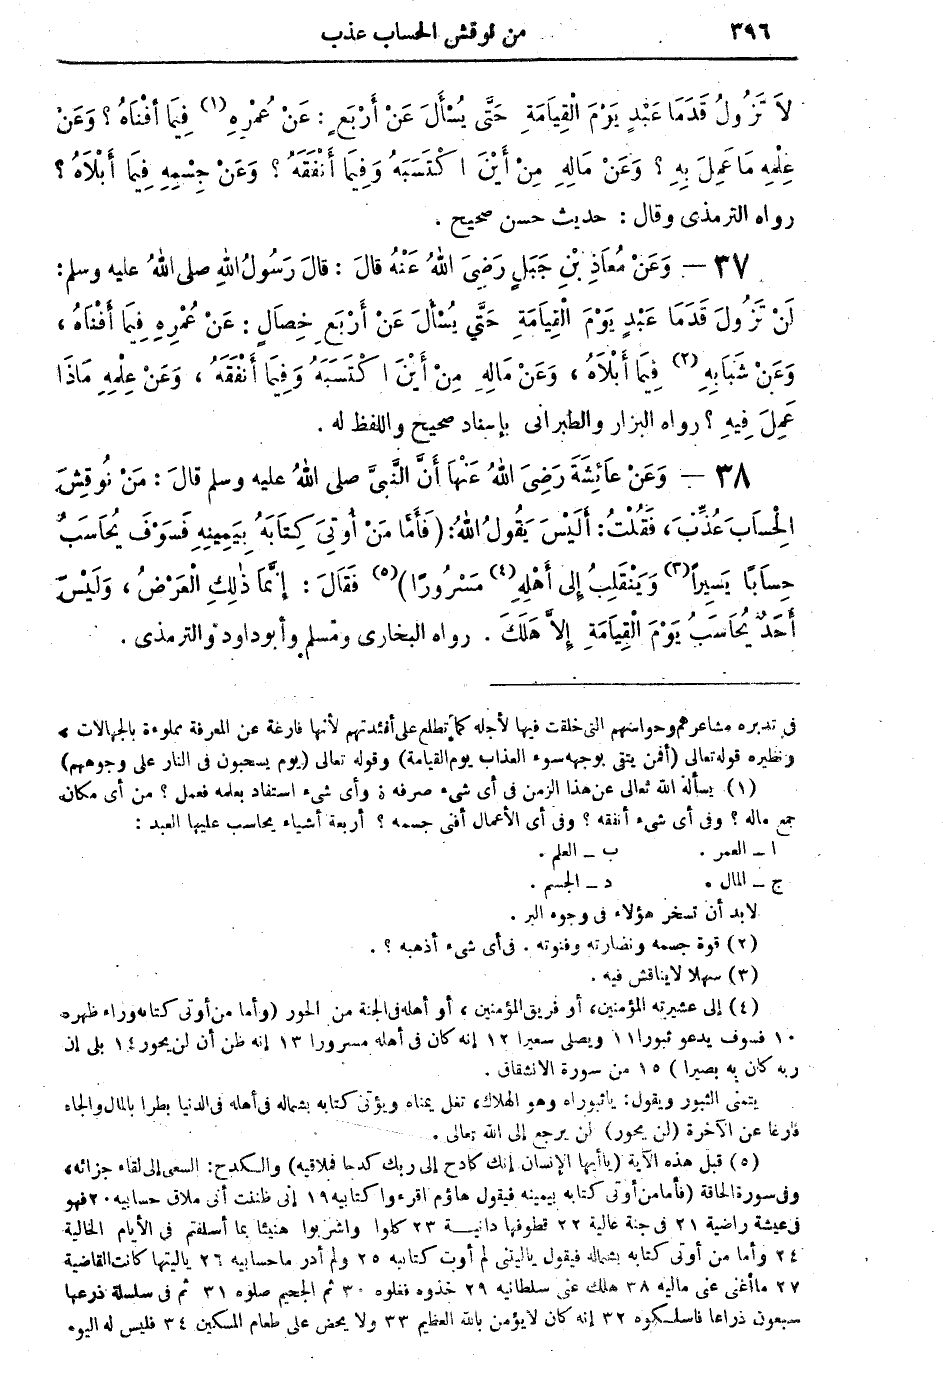 ٣٩٦ من نوقش الحساب عذب
لاَ تَزُولُ قَدَمَا عَبْدٍ يَوْمَ الْقِيَامَةِ حَتَّى يُسْأَلَ عَنْ أَرْبَعٍ : عَنْ عُمْرِهِ (١) فِيمَا أَفْنَاهُ ؟ وَعَنْ
عِلْمِهِ مَا عَمِلَ بِهِ ؟ وَعَنْ مَالِهِ مِنْ أَيْنَ اكْتَسَبَهُ وَفِيمَا أَنْفَقَهُ ؟ وَعَنْ جِسْمِهِ فِيمَا أَبْلاَهُ ؟
رواه الترمذى وقال : حديث حسن صحيح .
٣٧ — وَعَنْ مُعَاذِ بْنِ جَبَلٍ رَضِىَ اللهُ عَنْهُ قَالَ : قَالَ رَسُولُ اللهِ صلى اللهُ عليه وسلم :
لَنْ تَزُولَ قَدَمَا عَبْدٍ يَوْمَ الْقِيَامَةِ حَتَّي يُسْأَلَ عَنْ أَرْبَعِ خِصَالٍ : عَنْ عُمْرِهِ فِيمَا أَفْنَاهُ ،
وَعَنْ شَبَابِهِ (٢) فِيمَا أَبْلاَهُ ، وَعَنْ مَالِهِ مِنْ أَيْنَ اكْتَسَبَهُ وَفِيمَا أَنْفَقَهُ ، وَعَنْ عِلْمِهِ مَاذَا
عَمِلَ فِيهِ ؟ رواه البزار والطبرانى بإسناد صحيح واللفظ له .
٣٨ — وَعَنْ عَائِشَةَ رَضِىَ اللهُ عَنْهَا أَنَّ النَّبِىَّ صلى اللهُ عليه وسلم قَالَ : مَنْ نُوقِشَ
الْحِسَابَ عُذِّبَ ، فَقُلْتُ : أَلَيْسَ يَقُولُ اللهُ : (فَأَمَّا مَنْ أُوتِىَ كِتَابَهُ بِيَمِينِهِ فَسَوْفَ يُحَاسَبُ
حِسَابًا يَسِيراً (٣) وَيَنْقَلِبُ إِلى أَهْلِهِ (٤) مَسْرُورًا ) (٥) فَقَالَ : إِنَّمَا ذٰلِكِ الْعَرْضُ ، وَلَيْسَ
أَحَدٌ يُحَاسَبُ يَوْمَ الْقِيَامَةِ إِلاَّ هَلَكَ . رواه البخارى ومسلم وأبو داود والترمذى .
فى تدبره مشاعرهم وحواسهم التى خلقت فيها لأجله كما تطلع على أفئدتهم لأنها فارغة عن المعرفة مملوءة بالجهالات
ونظيره قوله تعالى (أفمن يتقى بوجهه سوء العذاب يوم القيامة) وقوله تعالى (يوم يسحبون فى النار على وجوههم)
(١) يسأله الله تعالى عن هذا الزمن فى أى شىء صرفه ؟ وأى شىء استفاد بعلمه فعمل ؟ من أى مكان
جمع ماله ؟ وفى أى شىء أنفقه ؟ وفى أى الأعمال أفنى جسمه ؟ أربعة أشياء يحاسب عليها العبد :
ا ـ العمر . ب ـ العلم .
ج ـ المال . د ـ الجسم .
لابد أن تسخر هؤلاء فى وجوه البر .
(٢) قوة جسمه ونضارته وفتوته . فى أى شىء أذهبه ؟ .
(٣) سهلا لايناقش فيه .
(٤) إلى عشيرته المؤمنين، أو فريق المؤمنين ، أو أهله فى الجنة من الحور (وأما من أوتى كتابه وراء ظهره
١٠ فسوف يدعو ثبورا ١١ ويصلى سعيرا ١٢ إنه كان فى أهله مسرورا ١٣ إنه ظن أن لن يحور ١٤ بلى إن
ربه كان به بصيرا ) ١٥ من سورة الانشقاق .
يتمنى الثبور ويقول : ياثبوراه وهو الهلاك، تغل يمناه ويؤتى كتابه بشماله فى أهله فى الدنيا بطرا بالمال والجاه
فارغا عن الآخرة (لن يحور) لن يرجع إلى الله تعالى .
(٥) قبل هذه الآية (ياأيها الإنسان إنك كادح إلى ربك كدحا فملاقيه) والكدح : السعى إلى لقاء جزائه،
وفى سورة الحاقة (فأما من أوتى كتابه بيمينه فيقول هاؤم اقرءوا كتابيه ١٩ إنى ظننت أنى ملاق حسابيه ٢٠ فهو
فى عيشة راضية ٢١ فى جنة عالية ٢٢ قطوفها دانيـة ٢٣ كلوا واشربوا هنيئا بما أسلفتم فى الأيام الخالية
٢٤ وأما من أوتى كتابه بشماله فيقول ياليتنى لم أوت كتابيه ٢٥ ولم أدر ماحسابيه ٢٦ ياليتها كانت القاضية
٢٧ ماأغنى عنى ماليه ٣٨ هلك عنى سلطانيه ٢٩ خذوه فغلوه ٣٠ ثم الجحيم صلوه ٣١ ثم فى سلسلة ذرعها
سبعون ذراعا فاسلكوه ٣٢ إنه كان لايؤمن بالله العظيم ٣٣ ولا يحض على طعام المسكين ٣٤ فليس له اليوم